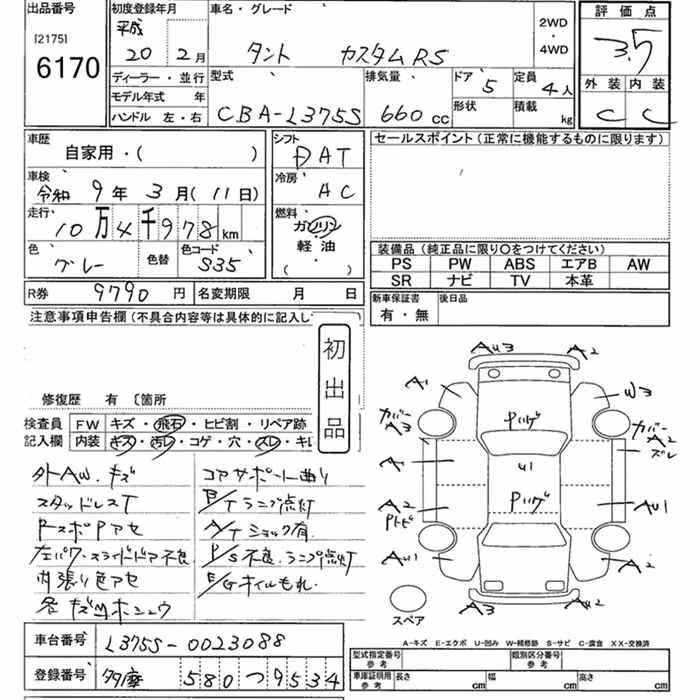 出品番号
[2175]
6170
初度登録年月
平成
20 2月
車名・グレード
タント カスタムRS
2WD
・
4WD
評価点
3.5
外装 内装
C C
ディーラー・並行
モデル年式 年
ハンドル 左・右
型式
CBA-L375S
排気量
660 cc
ドア 5
形状
定員 4人
積載 kg
車歴
自家用・( )
車検
令和 9年 3月(11日)
走行
10万4千978km
色
グレー
色替
色コード
S35
シフト
DAT
冷房
AC
燃料
ガソリン
軽油
( )
セールスポイント(正常に機能するものに限ります)
装備品(純正品に限り○をつけてください)
PS PW ABS エアB AW
SR ナビ TV 本革
R券 9790円 名変期限 月 日
新車保証書
有・無
後日品
注意事項申告欄(不具合内容等は具体的に記入し
初出品
修復歴 有 〔箇所
検査員
記入欄
FW キズ・飛石・ヒビ割・リペア跡
内装 キズ・汚レ・コゲ・穴・スレ・キレ
外AW.キズ
スタッドレスT
PスポPアセ
左パワースライドドア不良
内張り色アセ
各キズMホシュウ
コアサポート曲り
B/Tランプ点灯
A/Tショック有
P/S不良.ランプ点灯
E/Gオイルもれ.
AU3 A2
A1 W3
カバー
A3
Pハゲ
カバー
A2
ズレ
A1
U1
A2
Pトビ
Pハゲ
AU1
AU1
A2
A3 AU2
スペア
A-キズ E-エクボ U-凹み W-補修跡 S-サビ C-腐食 XX-交換済
車台番号 L375S-0023088
登録番号 580つ9534
型式指定番号
参考
類別区分番号
参考
車庫証明用
参考
長さ cm
幅 cm
高さ cm